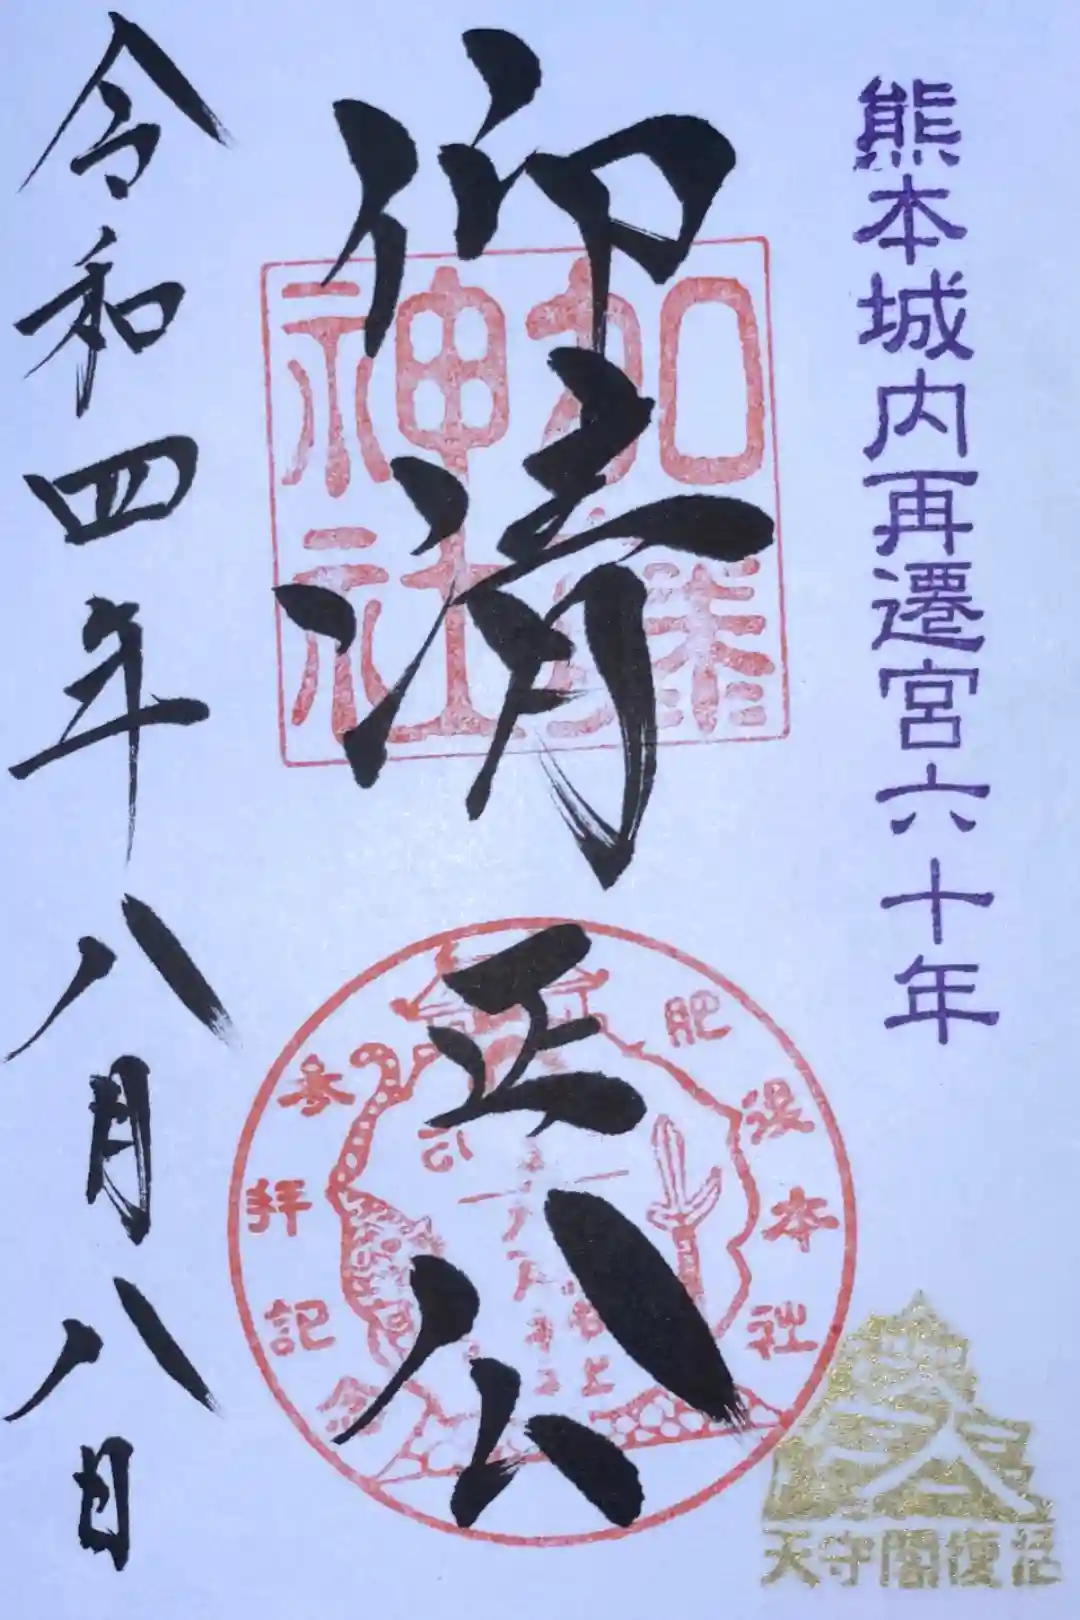 熊本城内再遷宮六十年
仰清正公
加藤神社
肥後本社
参拝記念
令和四年八月八日
天守閣復活